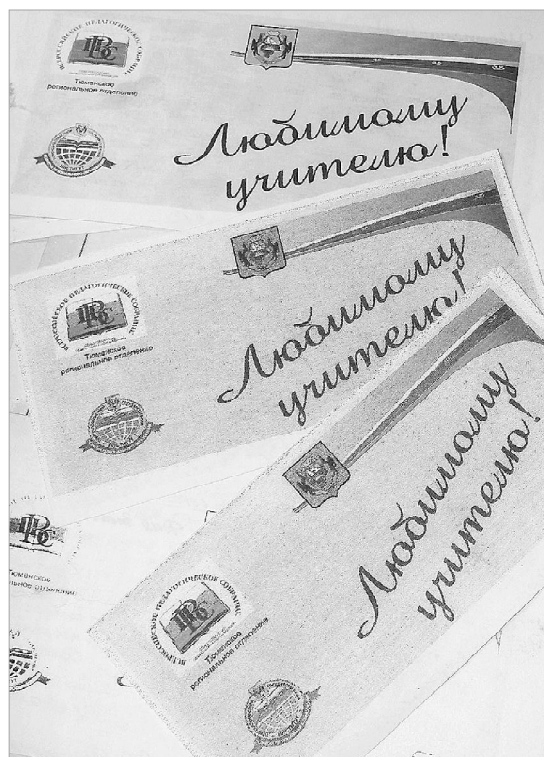 ВСЕРОССИЙСКОЕ ПЕДАГОГИЧЕСКОЕ СОБРАНИЕ
Тюменское
региональное отделение
Любимому
учителю!
ВСЕРОССИЙСКОЕ ПЕДАГОГИЧЕСКОЕ СОБРАНИЕ
Тюменское
региональное отделение
Любимому
учителю!
ВСЕРОССИЙСКОЕ ПЕДАГОГИЧЕСКОЕ СОБРАНИЕ
Тюменское
региональное отделение
Любимому
учителю!
Тюменское